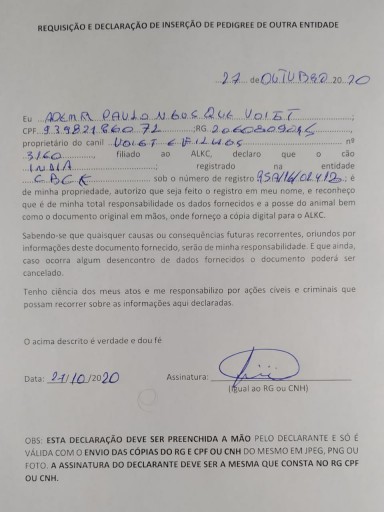 REQUISIÇÃO E DECLARAÇÃO DE INSERÇÃO DE PEDIGREE DE OUTRA ENTIDADE
27 de OUTUBRO 20 20
Eu ADEMIR PAULO NBOS QUE VOIGT
CPF 939821860 72 ;RG 2060809045
proprietário do canil VOIGT E FILHOS nº
3160 filiado ao ALKC, declaro que o cão
INDIA registrado na entidade
CBCK sob o número de registro ; é
de minha propriedade, autorizo que seja feito o registro em meu nome, e reconheço
que é de minha total responsabilidade os dados fornecidos e a posse do animal bem
como o documento original em mãos, onde forneço a cópia digital para o ALKC.
Sabendo-se que quaisquer causas ou consequências futuras recorrentes, oriundos por
informações deste documento fornecido, serão de minha responsabilidade. E que ainda,
caso ocorra algum desencontro de dados fornecidos o documento poderá ser
cancelado.
Tenho ciência dos meus atos e me responsabilizo por ações civeis e criminais que
possam recorrer sobre as informações aqui declaradas.
O acima descrito é verdade e dou fé
Data: 27/10/2020 Assinatura:
(Igual ao RG ou CNH)
OBS: ESTA DECLARAÇÃO DEVE SER PREENCHIDA A MÃO PELO DECLARANTE E SÓ É
VÁLIDA COM O ENVIO DAS CÓPIAS DO RG E CPF OU CNH DO MESMO EM JPEG, PNG OU
FOTO. A ASSINATURA DO DECLARANTE DEVE SER A MESMA QUE CONSTA NO RG CPF
OU CNH.